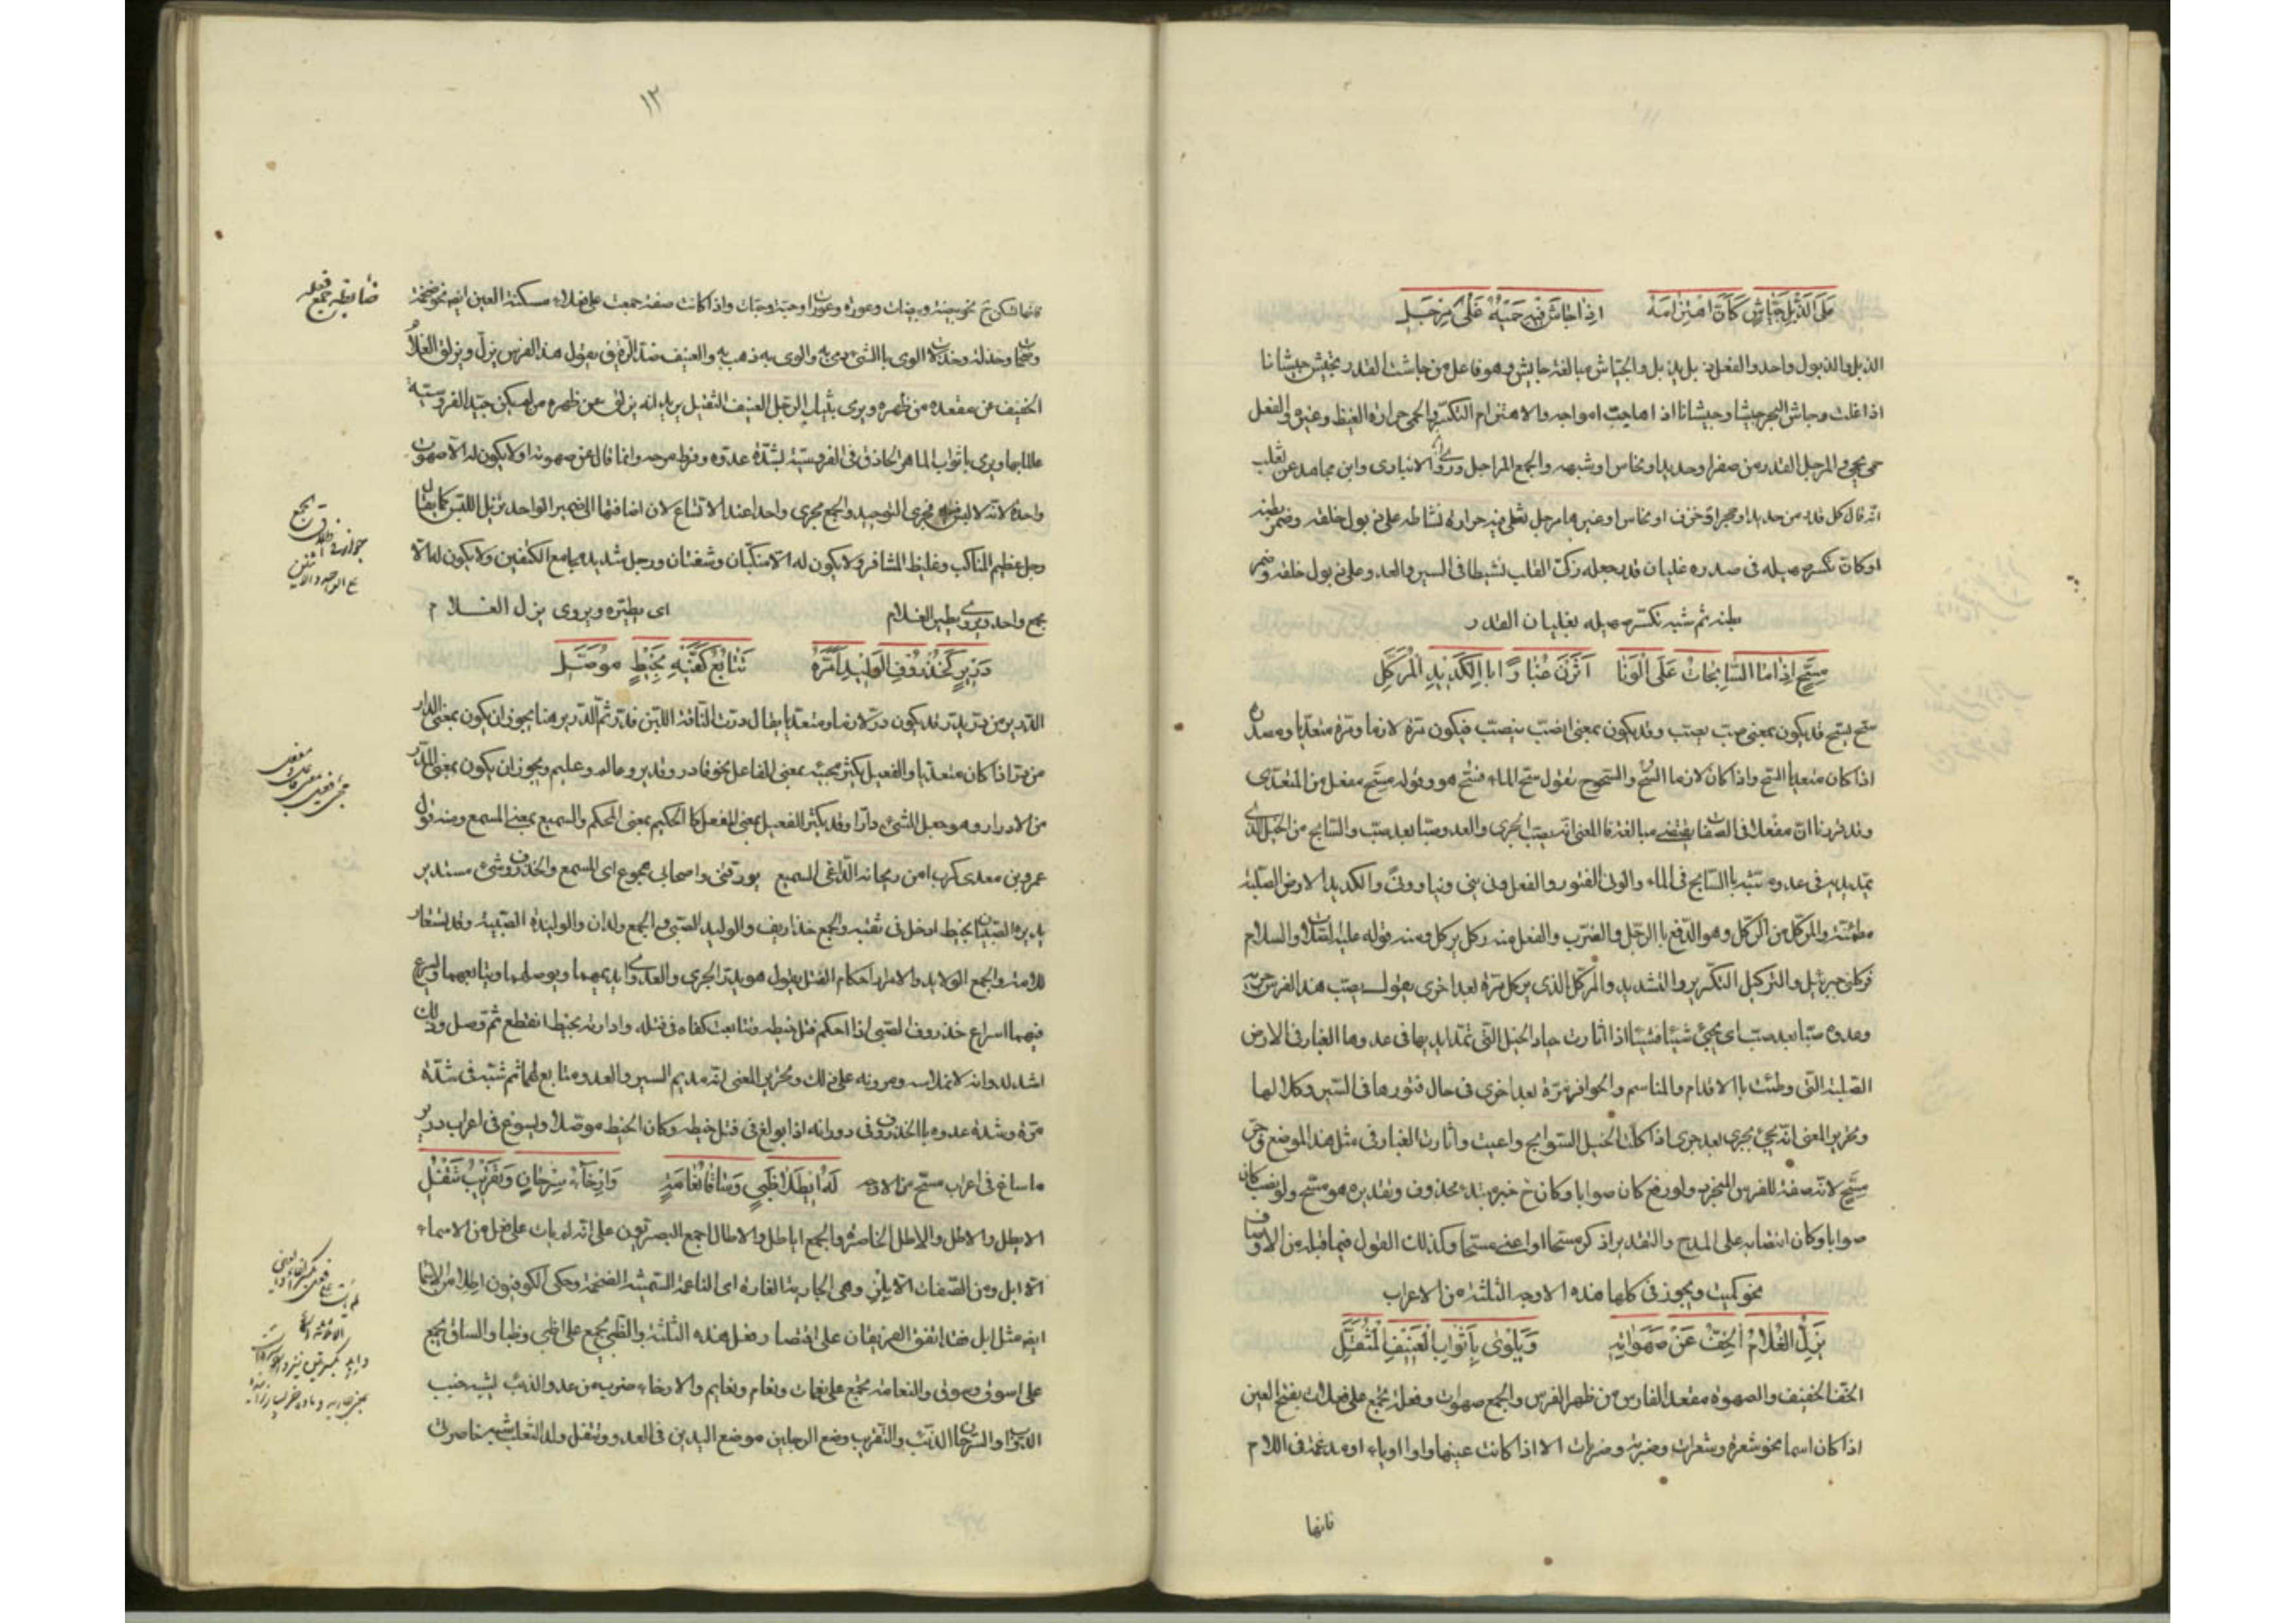 عَلَى الذَّبْلِ جَيَّاشٍ كَأَنَّ اهْتِزَامَهُ اِذَا جَاشَ فِيهِ حَمْيُهُ غَلْىُ مِرْجَلِ
الذبل والذبول واحد والفعل ذبل يذبل والجياش مبالغة جايش وهو فاعل من جاشت القدر تجيش جيشانا
اذا غلت وجاش البحر جيشا وجيشانا اذا هاجت امواجه والاهتزام التكسر والحمى حرارة الغيظ وغيره والفعل
حمى يحمى والمرجل القدر من صفر او حديد او نحاس او شبهه والجمع المراجل وروى الانبارى وابن مجاهد عن ثعلب
انه قال كل قدر من حديد او حجر او خزف او نحاس او غيرها مرجل تغلى فيه حرارة نشاطه على ذبول خلقه وضمر بطنه
او كان تكسر صهيله فى صدره غليان قدر يجعله زكى القلب نشيطا فى السير والعدو على ذبول خلقه وضمر
بطنه ثم شبه تكسر صهيله بغليان القدر
مِسَحٍّ اِذَا مَا السَّابِحَاتُ عَلَى الْوَنَا اَثَرْنَ غُبَارًا بِالْكَدِيدِ الْمُرَكَّلِ
سح يسح قد يكون بمعنى صب يصب وقد يكون بمعنى انصب ينصب فيكون مرة لازما ومرة متعديا ومصدره
اذا كان متعديا السح واذا كان لازما السح والسحوح يقول سح الماء فسح هو وقوله مسح مفعل من المتعدى
وقد قررنا ان مفعلا فى الصفات يقتضى مبالغة فالمعنى انه يصب الجرى والعدو صبا بعد صب والسابح من الخيل الذى
يمد يديه فى عدوه شبه بالسابح فى الماء والونى الفتور والفعل ونى ينى ونيا وونى والكديد الارض الصلبة
مطمئنة والمركل من الركل وهو الدفع بالرجل والضرب والفعل منه ركل يركل ومنه قوله عليه الصلاة والسلام
فركلنى جبرئيل والتركيل التكرير والتشديد والمركل الذى يركل مرة بعد اخرى يقول يصب هذا الفرس جريه
وعدوه صبا بعد صب اى يجيئ شيئا فشيئا اذا اثارت جياد الخيل التى تمد ايديها فى عدوها الغبار فى الارض
الصلبة التى وطئت بالاقدام والمناسم والحوافر مرة بعد اخرى فى حال فتورها فى السير وكلالها
وتحرير المعنى انه يجيئ بجرى بعد جرى اذا كلت الخيل السوابح واعيت واثارت الغبار فى مثل هذا الموضع وجر
مسح لانه صفة للفرس المنجرد ولو رفع كان صوابا وكان ح خبر مبتدء محذوف وتقديره هو مسح ولو نصب كان
صوابا وكان انتصابه على المدح والتقدير اذكر مسحا او اعنى مسحا وكذلك القول فيما قبله من الاوصاف
نحو كميت ويجوز فى كلها هذه الاوجه الثلثة من الاعراب
يَزِلُّ الْغُلَامُ الْخِفُّ عَنْ صَهَوَاتِهِ وَيُلْوِى بِأَثْوَابِ الْعَنِيفِ الْمُثَقَّلِ
الخف الخفيف والصهوة مقعد الفارس من ظهر الفرس والجمع صهوات وفعلة تجمع على فعلات بفتح العين
اذا كان اسما نحو شعرة وشعرات وضربة وضربات الا اذا كانت عينها واوا او ياء او مدغمة فى اللام
فانها
١٢
فانها تسكن ح نحو بيضة وبيضات وعورة وعورات وحبة وحبات واذا كانت صفة جمعت على فعلات مسكنة العين ايضا نحو ضخمة
وضخمات وخدلة وخدلات الوى بالشىء رمى به والوى به ذهب به والعنيف ضد الرفيق يقول هذا الفرس يزل ويزلق الغلام
الخفيف عن مقعده من ظهره ويرمى بثياب الرجل العنيف الثقيل يريد انه يزلق عن ظهره من لم يكن جيد الفروسية
عالما بها ويرمى باثواب الماهر الحاذق فى الفروسية لشدة عدوه وفرط مرحه وانما قال عن صهواته ولا يكون له الا صهوة
واحدة لانه لا لبس فيه فجرى التوحيد والجمع مجرى واحدا عند الاتساع لان اضافتها الى ضمير الواحد تزيل اللبس كما يقال
رجل عظيم المناكب وغليظ المشافر ولا يكون له الا منكبان وشفتان ورجل شديد مجامع الكتفين ولا يكون له الا
مجمع واحد ويروى يطير الغلام اى يطيره ويروى يزل الغلام
دَرِيرٍ كَخُذْرُوفِ الْوَلِيدِ أَمَرَّهُ تَتَابُعُ كَفَّيْهِ بِخَيْطٍ مُوَصَّلِ
الدرير من در يدر وقد يكون در لازما ومتعديا يقال درت الناقة اللبن فدر ثم الدرير هنا يجوز ان يكون بمعنى الدار
من در اذا كان متعديا والفعيل يكثر مجيئه بمعنى الفاعل نحو قادر وقدير وعالم وعليم ويجوز ان يكون بمعنى المدر
من الادرار وهو جعل الشىء دارا وقد يكثر الفعيل بمعنى المفعل كالحكيم بمعنى المحكم والسميع بمعنى المسمع ومنه قول
عمرو بن معدى كرب امن ريحانة الداعى السميع يورقنى واصحابى هجوع اى المسمع والخذروف شىء مستدير
يديره الصبيان بخيط ادخل فى ثقبه والجمع خذاريف والوليد الصبى والجمع ولدان والوليدة الصبية وقد يستعار
للامة والجمع الولايد والامرار احكام الفتل يقول هو يدر الجرى والعدو اى يديمهما ويوصلهما ويتابعهما ويسرع
فيهما اسراع خذروف الصبى اذا احكم فتل خيطه وتتابعت كفاه فى فتله وادارته بخيط انقطع ثم وصل وذلك
اشد لدورانه لانملاسه ومرونه على ذلك وتحرير المعنى انه مديم السير والعدو متابع لهما ثم شبه فى شدة
مره وشدة عدوه بالخذروف فى دورانه اذا بولغ فى فتل خيطه وكان الخيط موصلا ويسوغ فى اعراب درير
ما ساغ فى اعراب مسح من الاوجه لَهُ أَيْطَلَا ظَبْيٍ وَسَاقَا نَعَامَةٍ وَإِرْخَاءُ سِرْحَانٍ وَتَقْرِيبُ تَتْفُلِ
الايطل والاطل والاطل الخاصرة والجمع اياطل والاطال اجمع البصريون على انه لم يات على فعل من الاسماء
الا ابل ومن الصفات الا بلز وهى الجارية التارة اى الناعمة السمينة الضخمة وحكى الكوفيون اطلا من الاسماء
ايضا مثل ابل فقد اتفق الفريقان على اقتصار فعل هذه الثلثة والظبى يجمع على اظب وظباء والساق يجمع
على اسوق وسوق والنعامة تجمع على نعامات ونعام ونعايم والارخاء ضرب من عدو الذئب يشبه خبب
الدواب والسرحان الذئب والتقريب وضع الرجلين موضع اليدين فى العدو وتتفل ولد الثعلب شبه خاصرتى
ضابطه جمع فعله